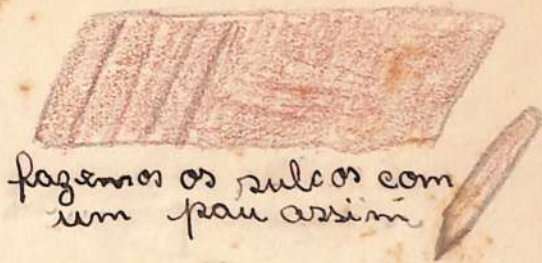 fazemos os sulcos com
um pau assim